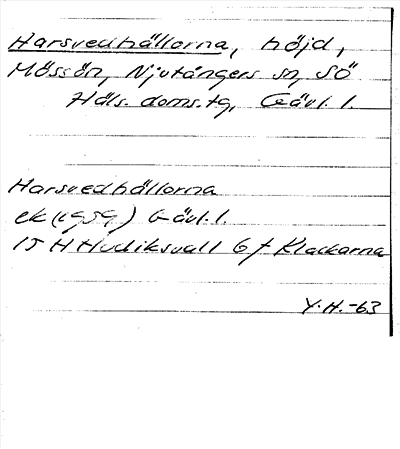 Harsvedhällorna, höjd,
Mössön, Njutångers sn, SÖ
Häls. doms.tg, Gävl. l.
Harsvedhällorna
ek (1959) Gävl. l.
15 H Hudiksvall 6 f Klackarna
Y.H.-63